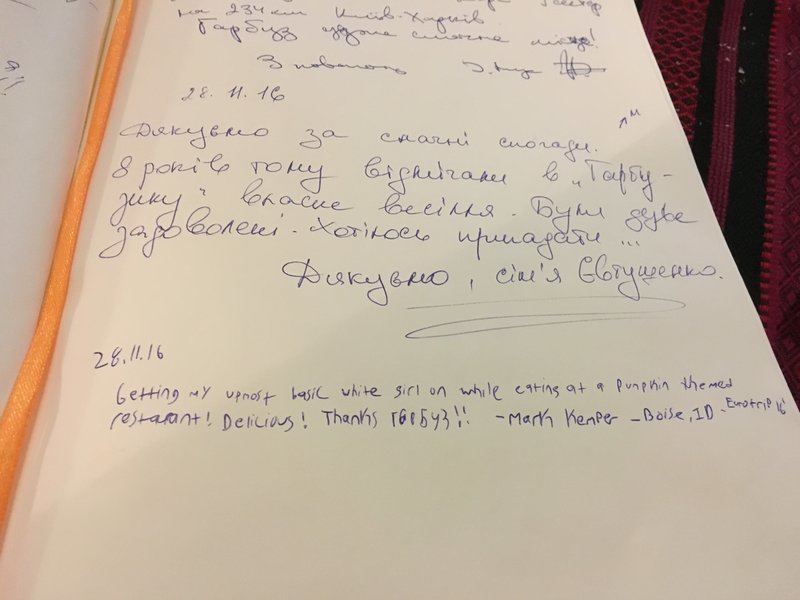 на 234 км Київ-Харків
Гарбуз дуже смачне місце!
З повагою
28.11.16
Дякуємо за смачні спогади.
8 років тому відмічали в „Гарбу-
зику" власне весілля. Були дуже
задоволені. Хотілось пригадати...
Дякуємо, сім'я Євтушенко.
28.11.16
Getting my upmost basic white girl on while eating at a pumpkin themed
restarant! Delicious! Thanks !! -Mark Kemper -Boise, ID - Eurotrip 16'